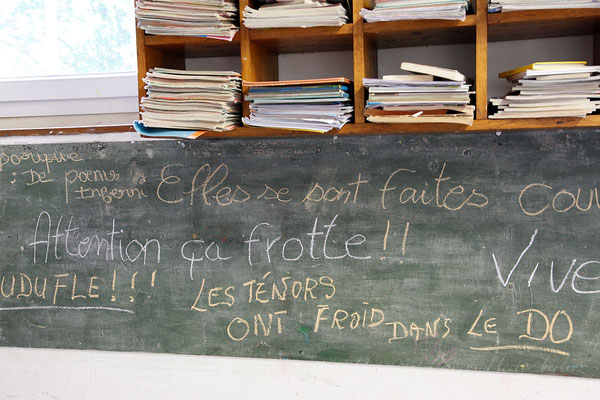 : De poemis
Elles se sont faites COUV
Attention ça frotte!!
Vive
UDUFLE!!!
LES TÉNORS
ONT FROID DANS LE DO